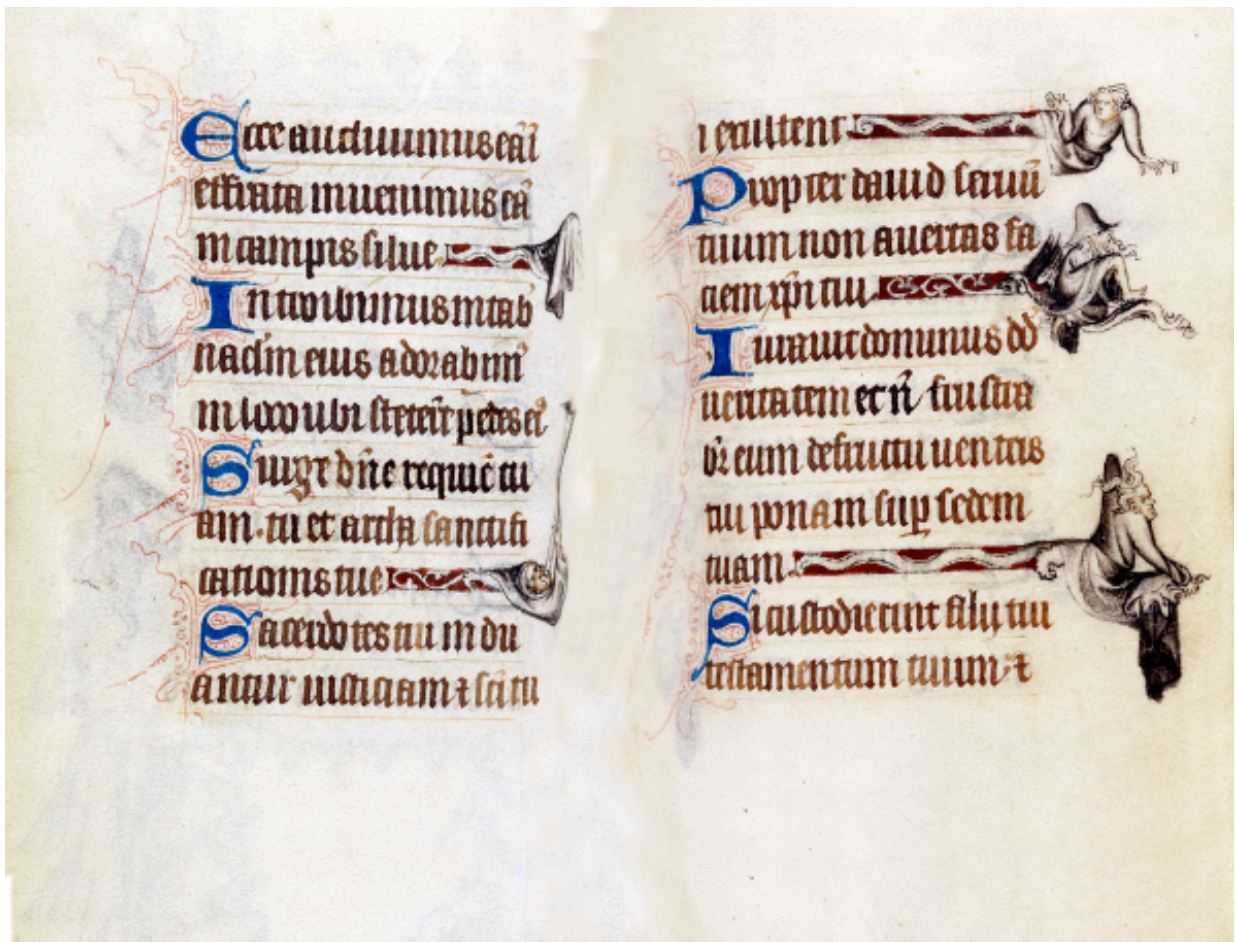 Ecce audiuimus eā ī
effrata inuenimus eā
in campis silue
Introibimus in tab
nac̄lm eius adorabim᷒
in loco ubi steterūt pedes ei᷒
Surge dn̄e in requiē tu
am. tu et archa sanctifi
cationis tue
Sacerdotes tui indu
antur iusticiam ⁊ sc̄i tu
i exultent
Propter dauid seruū
tuum non auertas fa
ciem xp̄i tui
Iurauit dominus dd̄
ueritatem et n̄ frustra
eum de fructu uentris
tui ponam sup̲ sedem
tuam
Si custodierint filij tui
testamentum meum ⁊